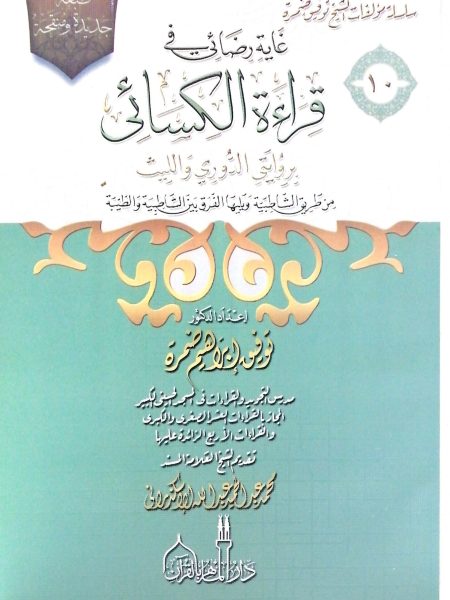 سلسلة مؤلفات الشيخ توفيق ضمرة
١٠
طبعة
جديدة ومنقحة
غاية رضائي في
قراءة الكسائي
بروايتي الدوري والليث
من طريق الشاطبية ويليها الفرق بين الشاطبية والطيبة
إعداد الدكتور
توفيق إبراهيم ضمرة
مدرس التجويد والقراءات في المسجد الحسيني الكبير
المجاز بالقراءات العشر الصغرى والكبرى
والقراءات الأربع الزائدة عليها
تقديم الشيخ العلامة المسند
محمد عبد الحميد عبد الله الإسكندراني
دار الماهر بالقرآن